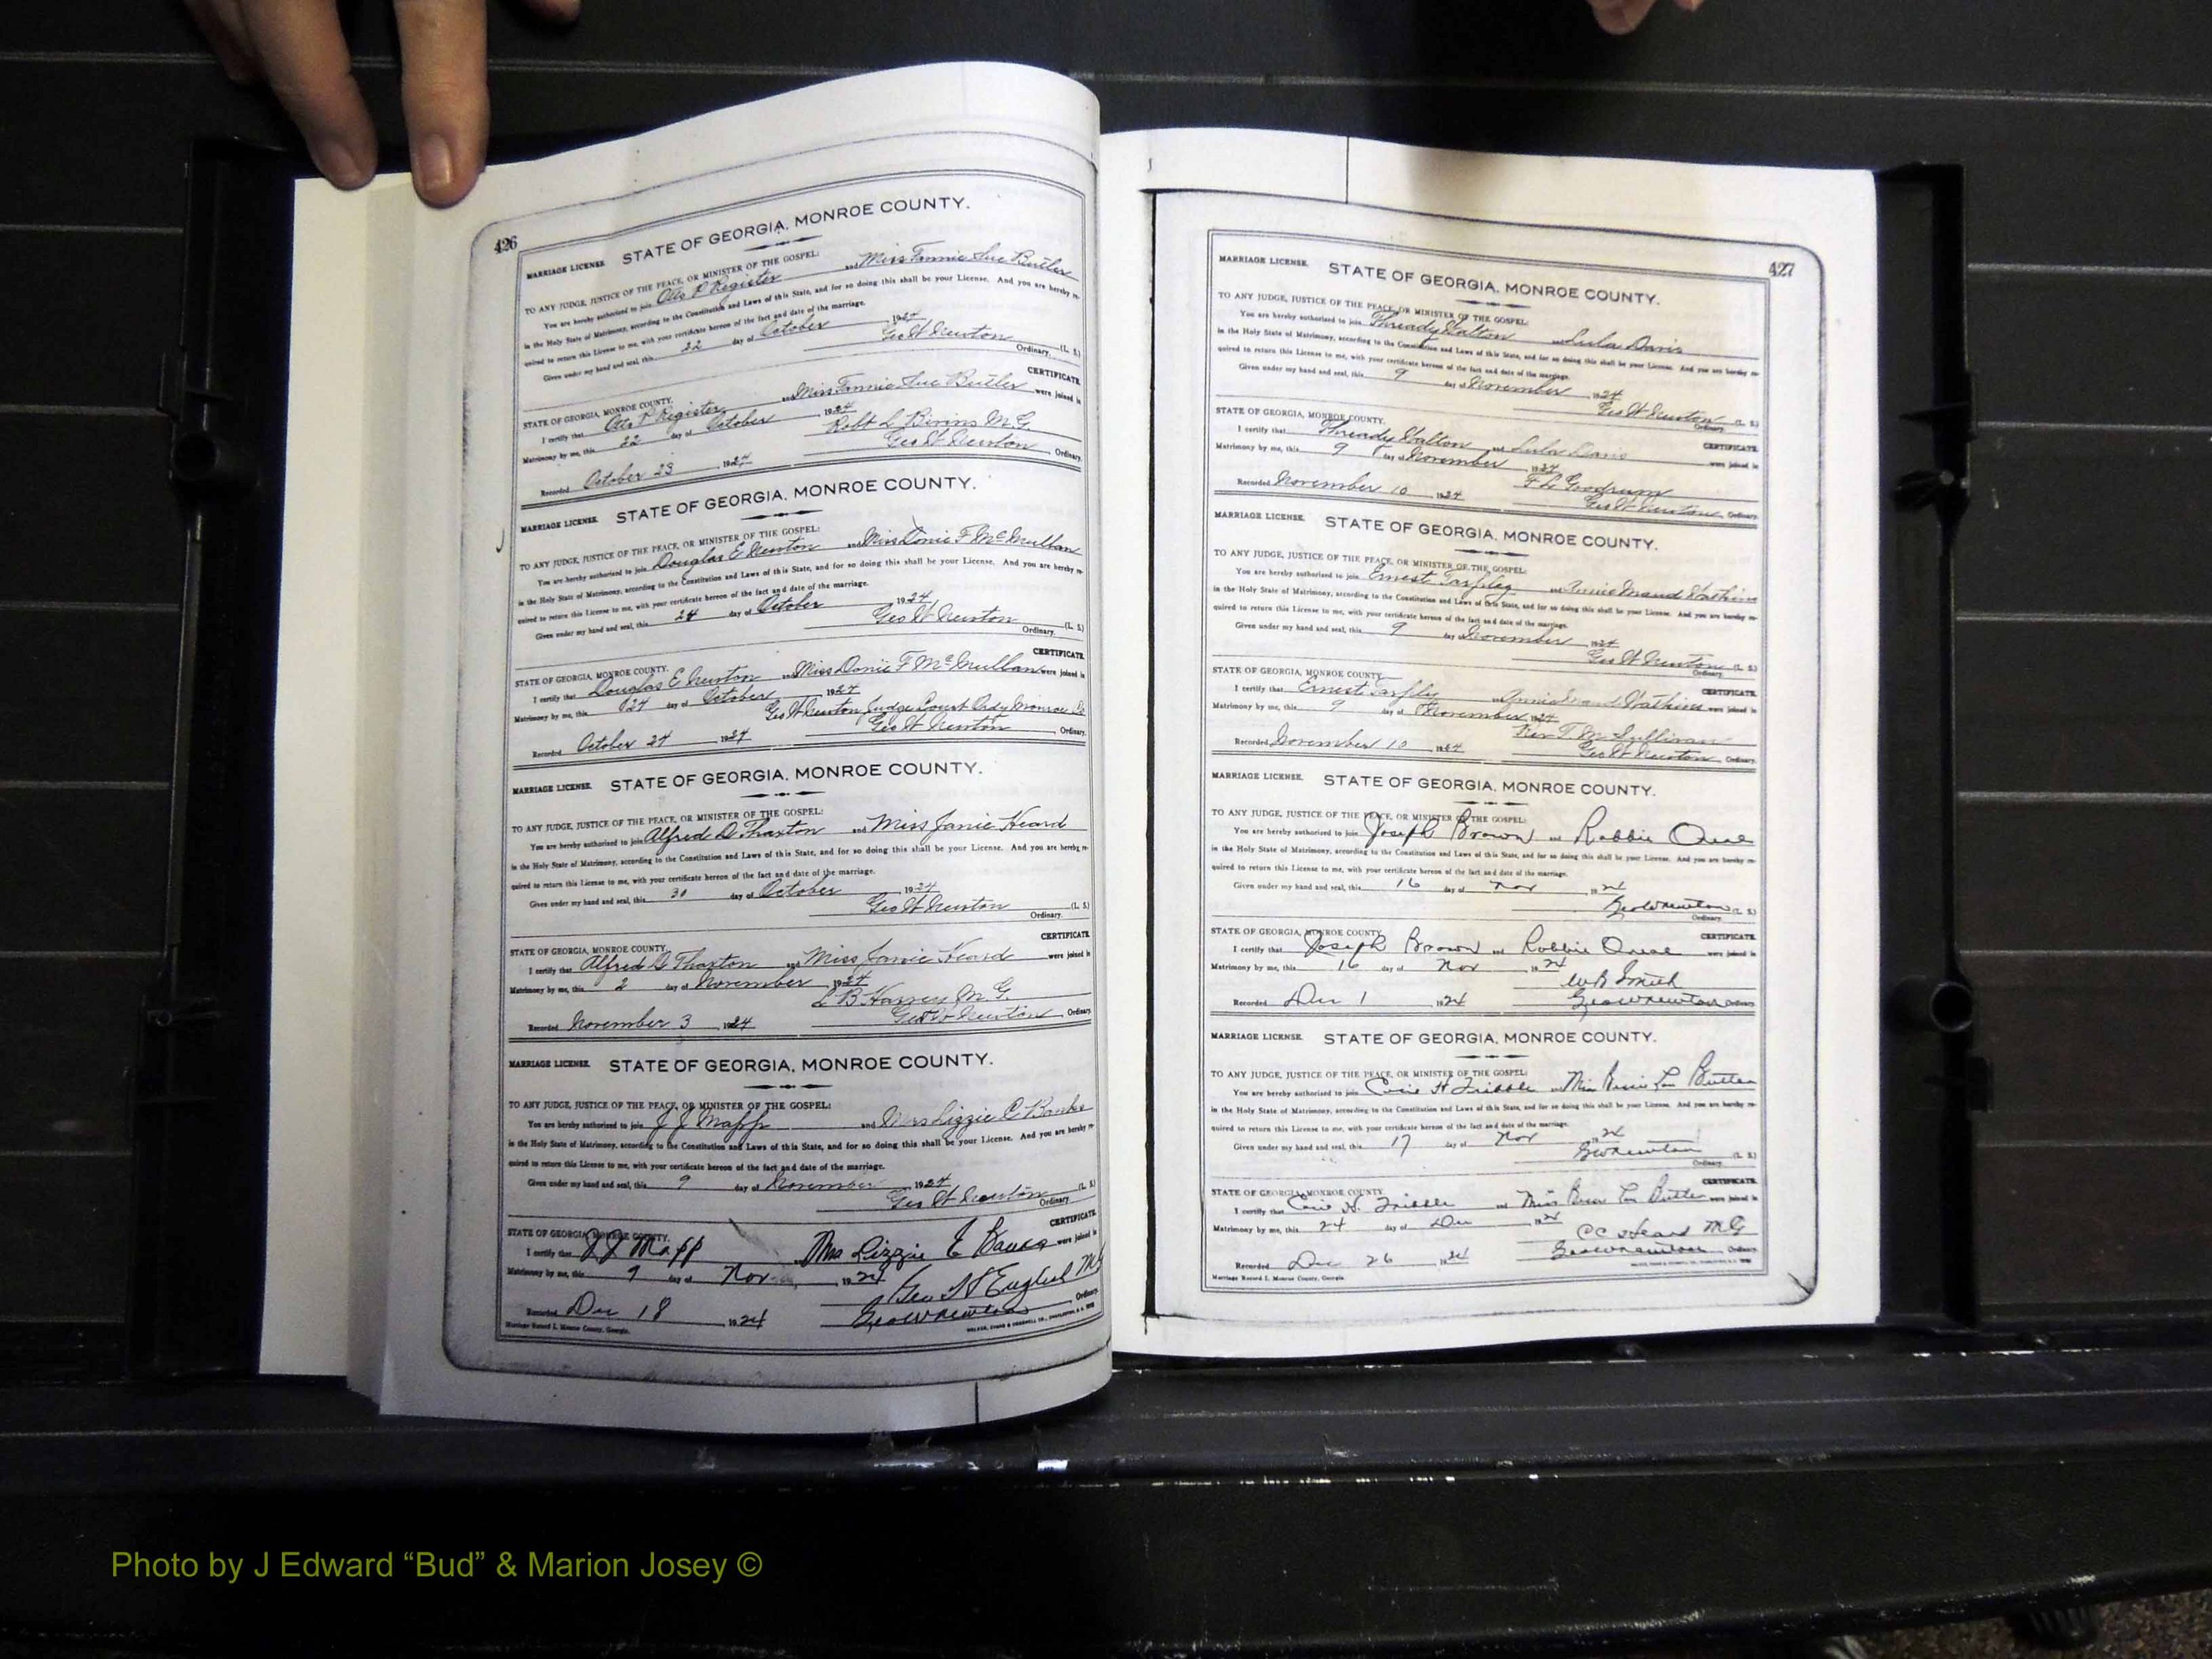 426
MARRIAGE LICENSE. STATE OF GEORGIA, MONROE COUNTY.
TO ANY JUDGE, JUSTICE OF THE PEACE, OR MINISTER OF THE GOSPEL:
You are hereby authorized to join Otto P Register and Miss Fannie Sue Butler
in the Holy State of Matrimony, according to the Constitution and Laws of this State, and for so doing this shall be your License. And you are hereby re-
quired to return this License to me, with your certificate hereon of the fact and date of the marriage.
Given under my hand and seal, this 22 day of October, 1924
Geo W Newton (L. S.)
Ordinary.
CERTIFICATE
STATE OF GEORGIA, MONROE COUNTY.
I certify that Otto P Register and Miss Fannie Sue Butler were joined in
Matrimony by me, this 22 day of October, 1924
Robt L Bivins M.G.
Recorded October 23, 1924 Geo W Newton Ordinary.
MARRIAGE LICENSE. STATE OF GEORGIA, MONROE COUNTY.
TO ANY JUDGE, JUSTICE OF THE PEACE, OR MINISTER OF THE GOSPEL:
You are hereby authorized to join Douglas E Newton and Miss Donie F McMullan
in the Holy State of Matrimony, according to the Constitution and Laws of this State, and for so doing this shall be your License. And you are hereby re-
quired to return this License to me, with your certificate hereon of the fact and date of the marriage.
Given under my hand and seal, this 24 day of October, 1924
Geo W Newton (L. S.)
Ordinary.
CERTIFICATE
STATE OF GEORGIA, MONROE COUNTY.
I certify that Douglas E Newton and Miss Donie F McMullan were joined in
Matrimony by me, this 24 day of October, 1924
Geo W Newton Judge Court Ordy Monroe Co
Recorded October 24, 1924 Geo W Newton, Ordinary.
MARRIAGE LICENSE. STATE OF GEORGIA, MONROE COUNTY.
TO ANY JUDGE, JUSTICE OF THE PEACE, OR MINISTER OF THE GOSPEL:
You are hereby authorized to join Alfred D Thaxton and Miss Janie Heard
in the Holy State of Matrimony, according to the Constitution and Laws of this State, and for so doing this shall be your License. And you are hereby re-
quired to return this License to me, with your certificate hereon of the fact and date of the marriage.
Given under my hand and seal, this 30 day of October, 1924
Geo W Newton (L. S.)
Ordinary.
CERTIFICATE
STATE OF GEORGIA, MONROE COUNTY.
I certify that Alfred D Thaxton and Miss Janie Heard were joined in
Matrimony by me, this 2 day of November, 1924
L B Harvey M G.
Recorded November 3, 1924 Geo W Newton Ordinary.
MARRIAGE LICENSE. STATE OF GEORGIA, MONROE COUNTY.
TO ANY JUDGE, JUSTICE OF THE PEACE, OR MINISTER OF THE GOSPEL:
You are hereby authorized to join J J Mapp and Mrs Lizzie C Banks
in the Holy State of Matrimony, according to the Constitution and Laws of this State, and for so doing this shall be your License. And you are hereby re-
quired to return this License to me, with your certificate hereon of the fact and date of the marriage.
Given under my hand and seal, this 9 day of November, 1924
Geo W Newton (L. S.)
Ordinary.
CERTIFICATE
STATE OF GEORGIA, MONROE COUNTY.
I certify that J J Mapp Mrs Lizzie C Banks were joined in
Matrimony by me, this 9 day of Nov, 1924
Geo W English MG
Recorded Dec 18, 1924 Geo W Newton Ordinary.
Marriage Record L Monroe County, Georgia.
427
MARRIAGE LICENSE. STATE OF GEORGIA, MONROE COUNTY.
TO ANY JUDGE, JUSTICE OF THE PEACE, OR MINISTER OF THE GOSPEL:
You are hereby authorized to join Thready Walton and Lula Davis
in the Holy State of Matrimony, according to the Constitution and Laws of this State, and for so doing this shall be your License. And you are hereby re-
quired to return this License to me, with your certificate hereon of the fact and date of the marriage.
Given under my hand and seal, this 9 day of November, 1924
Geo W Newton (L. S.)
Ordinary.
STATE OF GEORGIA, MONROE COUNTY. CERTIFICATE
I certify that Thready Walton and Lula Davis were joined in
Matrimony by me, this 9 day of November, 1924
F L Goodrum
Recorded November 10, 1924 Geo W Newton, Ordinary.
MARRIAGE LICENSE. STATE OF GEORGIA, MONROE COUNTY.
TO ANY JUDGE, JUSTICE OF THE PEACE, OR MINISTER OF THE GOSPEL:
You are hereby authorized to join Ernest Tarpley and Annie Maud Watkins
in the Holy State of Matrimony, according to the Constitution and Laws of this State, and for so doing this shall be your License. And you are hereby re-
quired to return this License to me, with your certificate hereon of the fact and date of the marriage.
Given under my hand and seal, this 9 day of November, 1924
Geo W Newton (L. S.)
Ordinary.
STATE OF GEORGIA, MONROE COUNTY. CERTIFICATE
I certify that Ernest Tarpley and Annie Maud Watkins were joined in
Matrimony by me, this 9 day of November, 1924
Rev T. M. Sullivan
Recorded November 10, 1924 Geo W Newton, Ordinary.
MARRIAGE LICENSE. STATE OF GEORGIA, MONROE COUNTY.
TO ANY JUDGE, JUSTICE OF THE PEACE, OR MINISTER OF THE GOSPEL:
You are hereby authorized to join Joseph Brown and Robbie
in the Holy State of Matrimony, according to the Constitution and Laws of this State, and for so doing this shall be your License. And you are hereby re-
quired to return this License to me, with your certificate hereon of the fact and date of the marriage.
Given under my hand and seal, this 16 day of Nov 1924
Geo W Newton (L. S.)
Ordinary.
STATE OF GEORGIA, MONROE COUNTY. CERTIFICATE
I certify that Joseph Brown and Robbie were joined in
Matrimony by me, this 16 day of Nov, 1924
W B Smith
Recorded Dec 1 1924 Geo W Newton Ordinary
MARRIAGE LICENSE. STATE OF GEORGIA, MONROE COUNTY.
TO ANY JUDGE, JUSTICE OF THE PEACE, OR MINISTER OF THE GOSPEL:
You are hereby authorized to join H Tribble and Miss Lou Butler
in the Holy State of Matrimony, according to the Constitution and Laws of this State, and for so doing this shall be your License. And you are hereby re-
quired to return this License to me, with your certificate hereon of the fact and date of the marriage.
Given under my hand and seal, this 17 day of Nov 1924
Geo W Newton (L. S.)
Ordinary.
STATE OF GEORGIA, MONROE COUNTY. CERTIFICATE
I certify that H. Tribble and Miss Lou Butler were joined in
Matrimony by me, this 24 day of Dec 1924
C C Heard MG
Recorded Dec 26 1924 Geo W Newton Ordinary
Marriage Record L Monroe County, Georgia.
Photo by J Edward “Bud” & Marion Josey ©